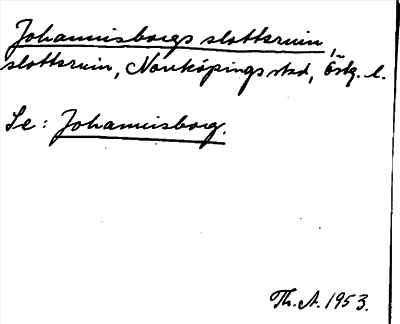 Johannisborgs slottsruin,
slottsruin, Norrköpings stad, Östg. l.
Se: Johannisborg.
Th. A. 1953.